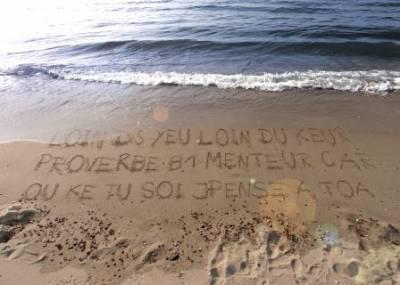 LOIN DS YEU LOIN DU KEUR
PROVERBE B1 MENTEUR CAR
OU KE TU SOI JPENSE A TOA